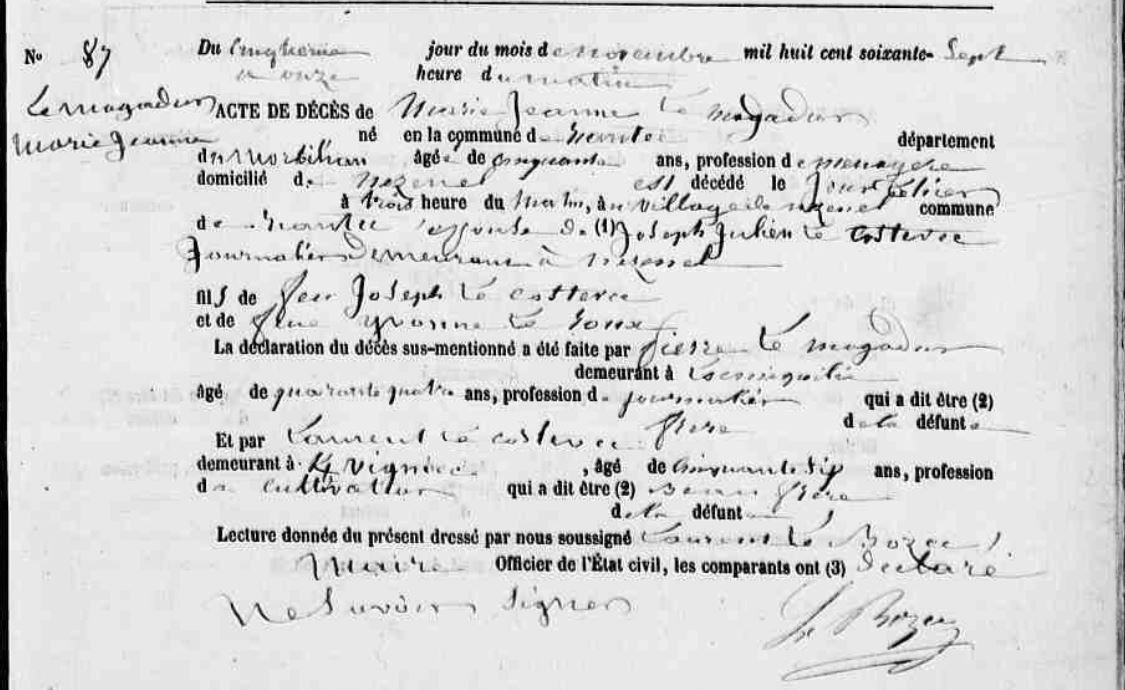 No 87
Du Cinquième jour du mois de novembre mil huit cent soixante-Sept
à onze heure du matin
Le magadur
Marie Jeanne
ACTE DE DÉCÈS de Marie Jeanne Le magadur
né en la commune de département
du Morbihan âgée de cinquante ans, profession de menagère
domicilié de est décédé le Jour
à trois heure du Matin, au village de commune
de épouse de (1) Joseph Julien Le Costevec
Journalier demeurant à
fils de feu Joseph Le Costevec
et de feue Yvonne Le Roux
La déclaration du décès sus-mentionné a été faite par Pierre Le magadur
demeurant à
âgé de quarante quatre ans, profession de journalier qui a dit être (2)
frère de la défunte
Et par Laurent Le Costevec
demeurant à , âgé de cinquante six ans, profession
de cultivateur qui a dit être (2) Beau frère
de la défunte
Lecture donnée du présent dressé par nous soussigné Laurent Le Bozec
Maire Officier de l'État civil, les comparants ont (3) declaré
Ne Savoir Signer
Le Bozec